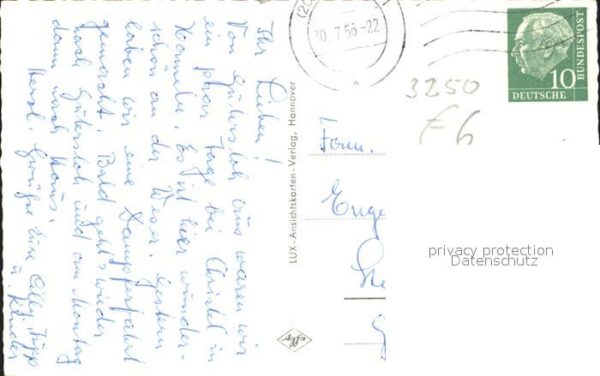 Ihr Lieben!
Von Gütersloh aus waren wir
ein paar Tage bei Christel in
Hameln. Es ist hier wunder-
schön an der Weser. Gestern
haben wir eine Dampferfahrt
gemacht. Bald geht's wieder
nach Gütersloh und am Montag
dann nach Haus.
Herzl. Grüße Eure Elly, Jupp
u. Kinder
LUX-Ansichtskarten-Verlag, Hannover
Agfa
(20
30.7.56-22
10
DEUTSCHE
BUNDESPOST
3250
Fam.
Euge
privacy protection
Datenschutz